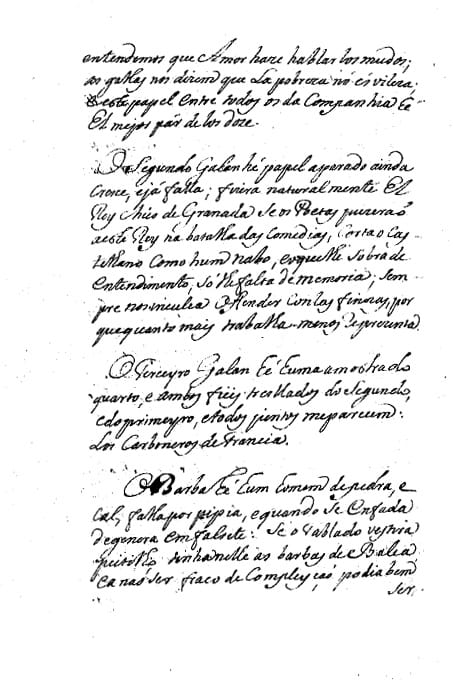 entendemos que Amor haze hablar los mudos;
as galas nos dizem que La pobreza nó es vileza
este papel entre todos os da Companhia he
El mejor par de los doze.
O Segundo Galan hé papel apparado ainda
Crece, e já falla; fuera naturalmente El
Rey Chico de Granada Se os Poetas puzeraõ
a este Rey na batalha das Comedias, Corta o Cas-
telhano Como hum nabo, e o que lhe Sobra de
entendimento, Só lhe falta de memoria; Sem
pre nos inculca Offender Con las finezas, por
que quanto mais trabalha menos Representa
O Terceyro Galan hé huma amostra do
quarto, e ambos fieis tresllados do Segundo,
e do primeyro, e todos juntos me parecem:
Los Carboneros de Francia.
O Barba hé hum homem de pedra, e
Cal, falla por pipia, e quando Se Enfada
degenera em falsete: Se o tablado vestira
tinha nelle as barbas de Balea
e a naõ Ser fraco de Compleyçaõ podia bem
Ser